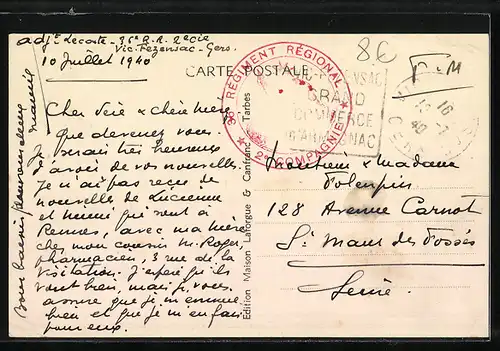 adjt Lecoste - 36e R.R. 2e Cie
Vic-Fezensac - Gers.
10 Juillet 1940
86
F.M
CARTE POSTALE
36e REGIMENT RÉGIONAL
2e COMPAGNIE
VIC-FEZENSAC
GRAND
COMMERCE
D'ARMAGNAC
16
40
GERS
Cher Père & chère Mère,
Que devenez vous.
Je serais très heureux
d'avoir de vos nouvelles.
Je n'ai pas reçu de
nouvelles de Lucienne
et mimi qui sont à
Rennes, avec ma mère
chez mon cousin M. Roger
pharmacien, 3 rue de la
Visitation. J'espère qu'ils
vont bien, mais je vous
assure que je m'ennuie
bien et que je m'en fais
pour eux.
Bons baisers
Edition Maison Laforgue & Canfranc Tarbes
Monsieur & Madame
128 Avenue Carnot
St Maur des Fossés
Seine.